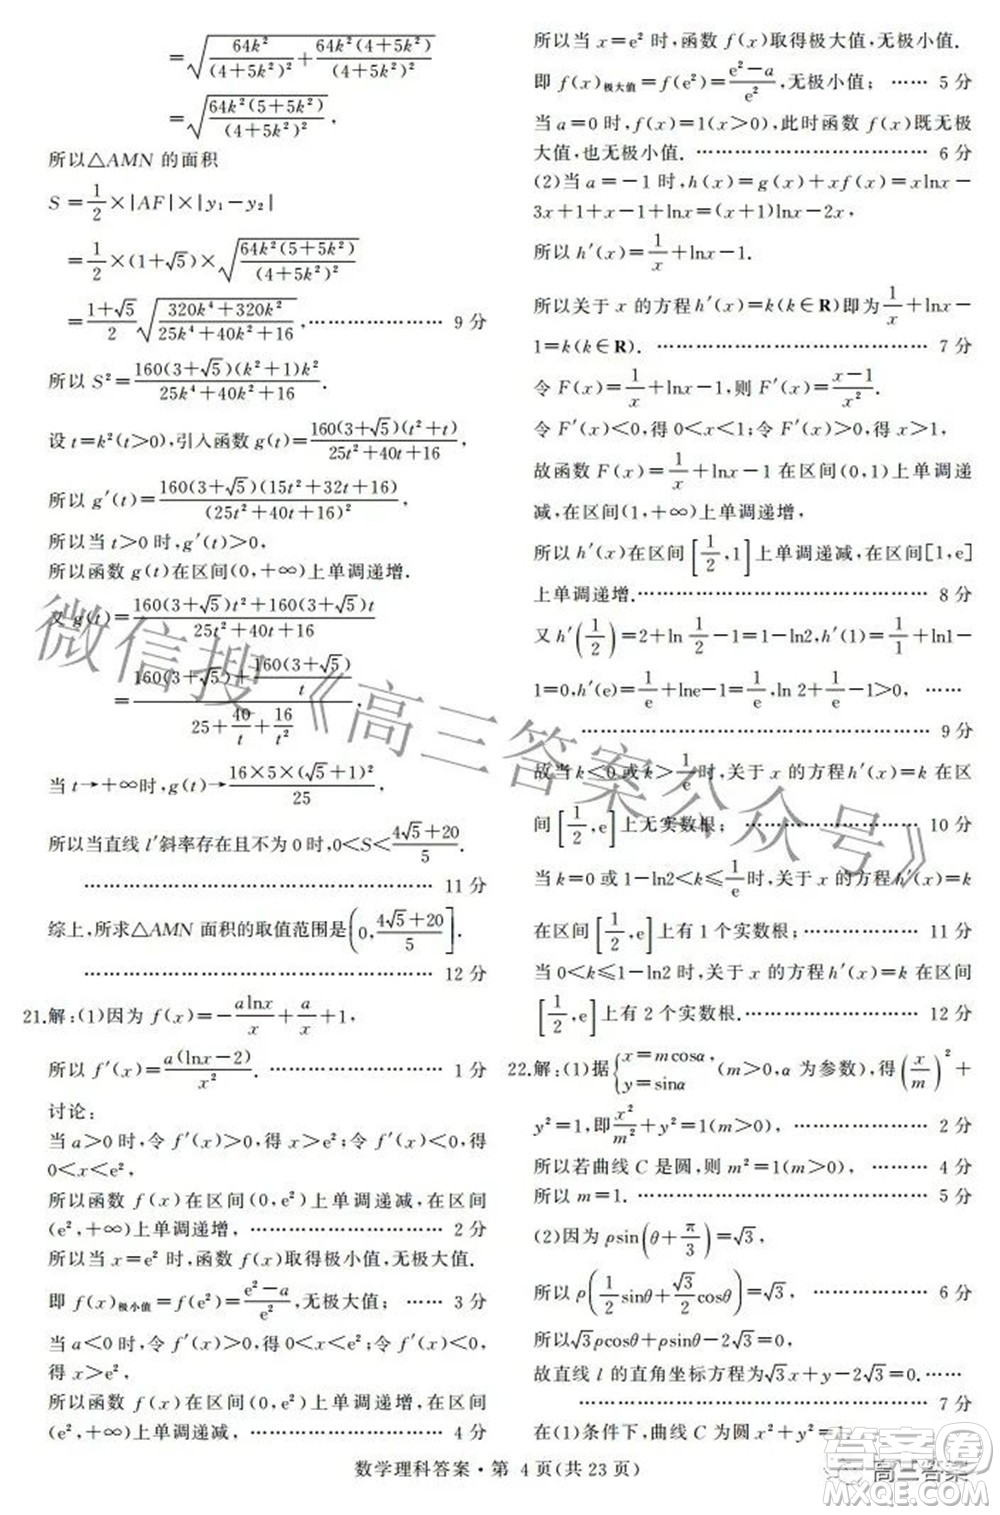 =√(64k²/(4+5k²)²+64k²(4+5k²)/(4+5k²)²)
=√(64k²(5+5k²)/(4+5k²)²).
所以△AMN 的面积
S=1/2×|AF|×|y₁-y₂|
=1/2×(1+√5)×√(64k²(5+5k²)/(4+5k²)²)
=(1+√5)/2 √((320k⁴+320k²)/(25k⁴+40k²+16)),…………………9 分
所以 S²=160(3+√5)(k²+1)k²/(25k⁴+40k²+16).
设 t=k²(t>0),引入函数 g(t)=160(3+√5)(t²+t)/(25t²+40t+16),
所以 g′(t)=160(3+√5)(15t²+32t+16)/(25t²+40t+16)².
所以当 t>0 时,g′(t)>0,
所以函数 g(t)在区间(0,+∞)上单调递增.
又 g(t)=(160(3+√5)t²+160(3+√5)t)/(25t²+40t+16)
=(160(3+√5)+160(3+√5)/t)/(25+40/t+16/t²),
当 t→+∞时,g(t)→16×5×(√5+1)²/25,
所以当直线 l′斜率存在且不为 0 时,0<S<(4√5+20)/5.
…………………………………………… 11 分
综上,所求△AMN 面积的取值范围是(0,(4√5+20)/5].
…………………………………………… 12 分
21.解:(1)因为 f(x)=-alnx/x+a/x+1,
所以 f′(x)=a(lnx-2)/x². ……………………… 1 分
讨论:
当 a>0 时,令 f′(x)>0,得 x>e²;令 f′(x)<0,得
0<x<e²,
所以函数 f(x)在区间(0,e²)上单调递减,在区间
(e²,+∞)上单调递增, ……………………… 2 分
所以当 x=e² 时,函数 f(x)取得极小值,无极大值.
即 f(x)极小值=f(e²)=(e²-a)/e²,无极大值; …… 3 分
当 a<0 时,令 f′(x)>0,得 0<x<e²;令 f′(x)<0,
得 x>e²,
所以函数 f(x)在区间(0,e²)上单调递增,在区间
(e²,+∞)上单调递减, ……………………… 4 分
所以当 x=e² 时,函数 f(x)取得极大值,无极小值.
即 f(x)极大值=f(e²)=(e²-a)/e²,无极小值; …… 5 分
当 a=0 时,f(x)=1(x>0),此时函数 f(x)既无极
大值,也无极小值. ……………………………… 6 分
(2)当 a=-1 时,h(x)=g(x)+xf(x)=xlnx-
3x+1+x-1+lnx=(x+1)lnx-2x,
所以 h′(x)=1/x+lnx-1.
所以关于 x 的方程 h′(x)=k(k∈R)即为 1/x+lnx-
1=k(k∈R). …………………………………… 7 分
令 F(x)=1/x+lnx-1,则 F′(x)=(x-1)/x².
令 F′(x)<0,得 0<x<1;令 F′(x)>0,得 x>1,
故函数 F(x)=1/x+lnx-1 在区间(0,1)上单调递
减,在区间(1,+∞)上单调递增,
所以 h′(x)在区间[1/2,1]上单调递减,在区间[1,e]
上单调递增.…………………………………… 8 分
又 h′(1/2)=2+ln 1/2-1=1-ln2,h′(1)=1/1+ln1-
1=0,h′(e)=1/e+lne-1=1/e,ln 2+1/e-1>0, ……
……………………………………………… 9 分
故当 k<0 或 k>1/e时,关于 x 的方程h′(x)=k 在区
间[1/2,e]上无实数根; ………………………… 10 分
当 k=0 或 1-ln2<k≤1/e时,关于 x 的方程h′(x)=k
在区间[1/2,e]上有 1 个实数根;……………… 11 分
当 0<k≤1-ln2 时,关于 x 的方程 h′(x)=k 在区间
[1/2,e]上有 2 个实数根.……………………… 12 分
22.解:(1)据{x=mcosα, y=sinα (m>0,α 为参数),得(x/m)²+
y²=1,即x²/m²+y²=1(m>0), ………………… 2 分
所以若曲线 C 是圆,则 m²=1(m>0), ……… 4 分
所以 m=1. …………………………………… 5 分
(2)因为 ρsin(θ+π/3)=√3,
所以 ρ(1/2 sinθ+√3/2 cosθ)=√3, ……………… 6 分
所以√3ρcosθ+ρsinθ-2√3=0.
故直线 l 的直角坐标方程为√3x+y-2√3=0. ……
……………………………………………… 7 分
在(1)条件下,曲线 C 为圆 x²+y²=1.
数学理科答案·第 4 页(共 23 页)
微信搜《高三答案公众号》
高三答案
答案圈
MXQE.COM